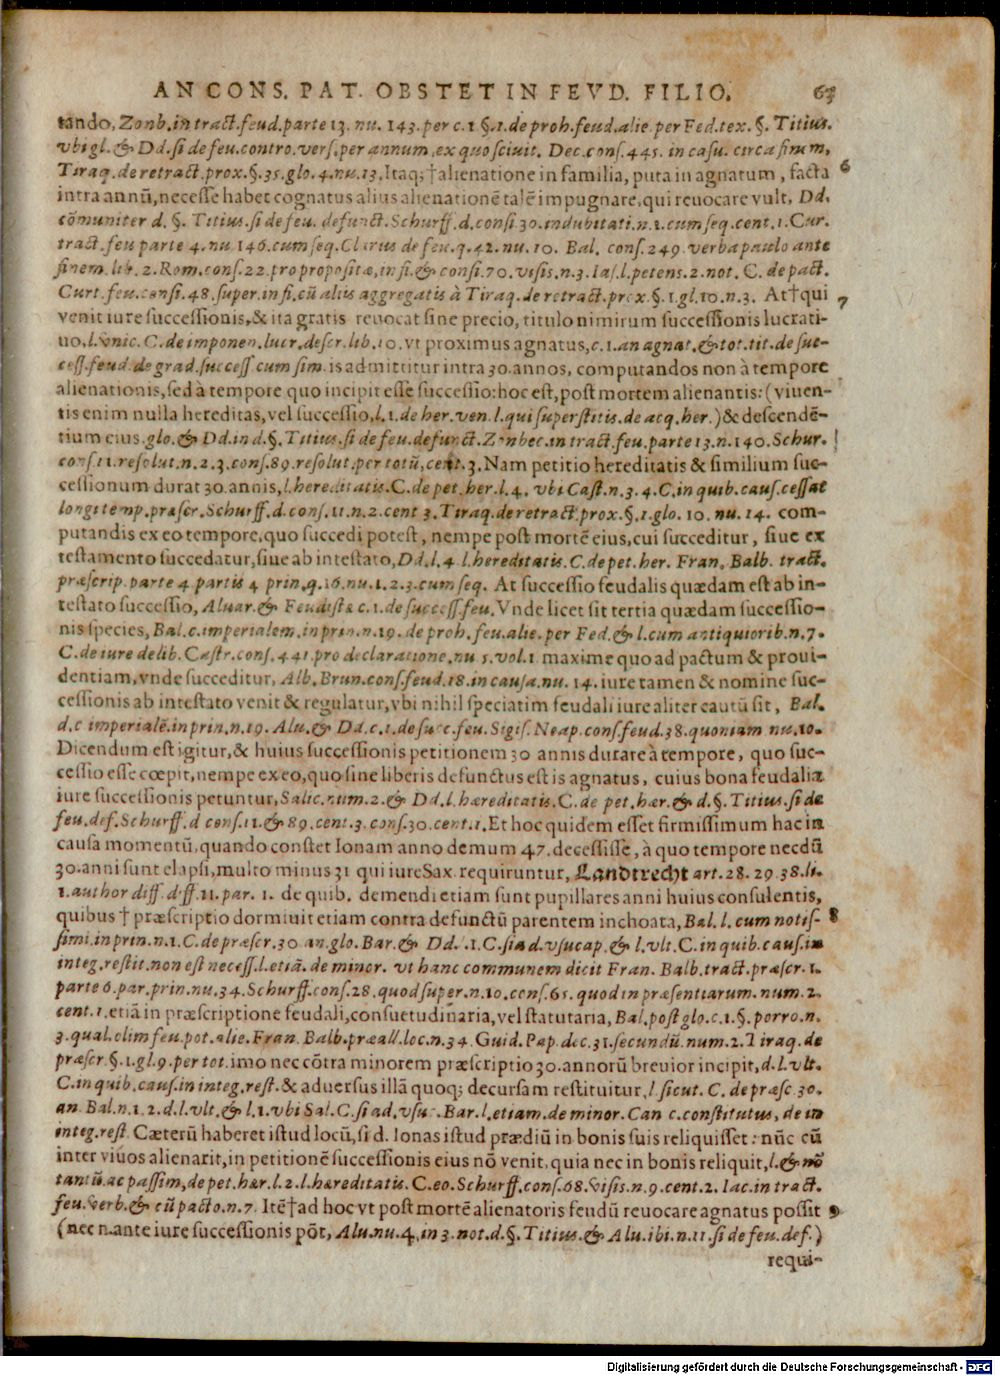 AN CONS. PAT. OBSTET IN FEVD. FILIO. 63
tando, Zonb. in tract. feud. parte 13. nu. 143. per c. 1. §. 1. de proh. feud. alie. per Fed. tex. §. Titius.
vbi gl. & Dd. si de feu. contro. vers. per annum, ex quo sciuit. Dec. cons. 445. in casu. circa finem,
Tiraq. de retract. prox. §. 35. glo. 4. nu. 13. Itaq; † alienatione in familia, puta in agnatum, facta 6
intra annū, necesse habet cognatus alius alienationē talē impugnare, qui reuocare vult, Dd.
cōmuniter d. §. Titius. si de feu. defunct. Schurff. d. consi 30. indubitati. n. 1. cum seq. cent. 1. Cur.
tract. feu parte 4. nu. 146. cum seq. Clarius de feu. q. 42. nu. 10. Bal. cons. 249. verba paulo ante
finem. lib. 2. Rom. cons. 22. pro proposita, in fi. & consi. 70. visis. n. 3. Ias. l. petens. 2. not. C. de pact.
Curt. feu. consi. 48. super. in fi. cū aliis aggregatis à Tiraq. de retract. prox. §. 1. gl. 10. n. 3. At † qui 7
venit iure successionis, & ita gratis reuocat sine precio, titulo nimirum successionis lucrati-
uo, l. vnic. C. de imponen. lucr. descr. lib. 10. vt proximus agnatus, c. 1. an agnat. & tot. tit. de suc-
cess. feud. de grad. success. cum sim. is admittitur intra 30. annos, computandos non à tempore
alienationis, sed à tempore quo incipit esse successio: hoc est, post mortem alienantis: (viuen-
tis enim nulla hereditas, vel successio, l. 1. de her. ven. l. qui superstitis. de acq. her.) & descendē-
tium eius. glo. & Dd. in d. §. Titius. si de feu. defunct. Zonbec. in tract. feu. parte 13. n. 140. Schur.
cons. 11. resolut. n. 2. 3. cons. 89. resolut. per totū, cent. 3. Nam petitio hereditatis & similium suc-
cessionum durat 30. annis, l. hereditatis. C. de pet. her. l. 4. vbi Cast. n. 3. 4. C. in quib. caus. cessat
longi temp. præscr. Schurff. d. cons. 11. n. 2. cent 3. Tiraq. de retract. prox. §. 1. glo. 10. nu. 14. com-
putandis ex eo tempore, quo succedi potest, nempe post mortē eius, cui succeditur, siue ex
testamento succedatur, siue ab intestato, Dd. l. 4. l. hereditatis. C. de pet. her. Fran. Balb. tract.
præscrip. parte 4. partis 4 prin. q. 16. nu. 1. 2. 3. cum seq. At successio feudalis quædam est ab in-
testato successio, Aluar. & Feudistæ c. 1. de success. feu. Vnde licet sit tertia quædam successio-
nis species, Bal. c. imperialem. in prin. n. 19. de proh. feu. alie. per Fed. & l. cum antiquiorib. n. 7.
C. de iure delib. Castr. cons. 441. pro declaratione. nu 5. vol. 1 maxime quo ad pactum & proui-
dentiam, vnde succeditur, Alb. Brun. cons. feud. 18. in causa. nu. 14. iure tamen & nomine suc-
cessionis ab intestato venit & regulatur, vbi nihil speciatim feudali iure aliter cautū sit, Bal.
d. c imperialē. in prin. n. 19. Alu. & Dd. c. 1. de succ. feu. Sigis. Neap. cons. feud. 38. quoniam nu. 10.
Dicendum est igitur, & huius successionis petitionem 30 annis durare à tempore, quo suc-
cessio esse cœpit, nempe ex eo, quo sine liberis defunctus est is agnatus, cuius bona feudalia
iure successionis petuntur, Salic. num. 2. & Dd. l. hæreditatis. C. de pet. hær. & d. §. Titius. si de
feu. def. Schurff. d cons. 11. & 89. cent. 3. cons. 30. cent. 1. Et hoc quidem esset firmissimum hac in
causa momentū, quando constet Ionam anno demum 47. decessisse, à quo tempore necdū
30. anni sunt elapsi, multo minus 31 qui iure Sax. requiruntur, Landtrecht art. 28. 29. 38. li.
1. author diff. diff. 11. par. 1. de quib. demendi etiam sunt pupillares anni huius consulentis,
quibus † præscriptio dormiuit etiam contra defunctū parentem inchoata, Bal. l. cum notis- 8
simi. in prin. n. 1. C. de præscr. 30 an. glo. Bar. & Dd. l. 1. C. si ad. vsucap. & l. vlt. C. in quib. caus. in
integ. restit. non est necess. l. etiā. de minor. vt hanc communem dicit Fran. Balb. tract. præscr. 1.
parte 6. par. prin. nu. 34. Schurff. cons. 28. quod super. n. 10. cons. 65. quod in præsentiarum. num. 2.
cent. 1. etiā in præscriptione feudali, consuetudinaria, vel statutaria, Bal. post glo. c. 1. §. porro. n.
3. qual. olim feu. pot. alie. Fran. Balb. præall. loc. n. 34. Guid. Pap. dec. 31. secundū. num. 2. Tiraq. de
præscr. §. 1. gl. 9. per tot. imo nec cōtra minorem præscriptio 30. annorū breuior incipit, d. l. vlt.
C. in quib. caus. in integ. rest. & aduersus illā quoq; decursam restituitur, l. sicut. C. de præsc. 30.
an. Bal. n. 1. 2. d. l. vlt. & l. 1. vbi Sal. C. si ad. vsuc. Bar. l. etiam. de minor. Can c. constitutus, de in
integ. rest. Cæterū haberet istud locū, si d. Ionas istud prædiū in bonis suis reliquisset: nūc cū
inter viuos alienarit, in petitionē successionis eius nō venit, quia nec in bonis reliquit, l. & nō
tantū. ac passim, de pet. hær. l. 2. l. hæreditatis. C. eo. Schurff. cons. 68. visis. n. 9. cent. 2. Iac. in tract.
feu. verb. & cū pacto. n. 7. Itē † ad hoc vt post mortē alienatoris feudū reuocare agnatus possit 9
(nec n. ante iure successionis pōt, Alu. nu. 4. in 3. not. d. §. Titius. & Alu. ibi. n. 11. si de feu. def.)
requi-
Digitalisierung gefördert durch die Deutsche Forschungsgemeinschaft - DFG